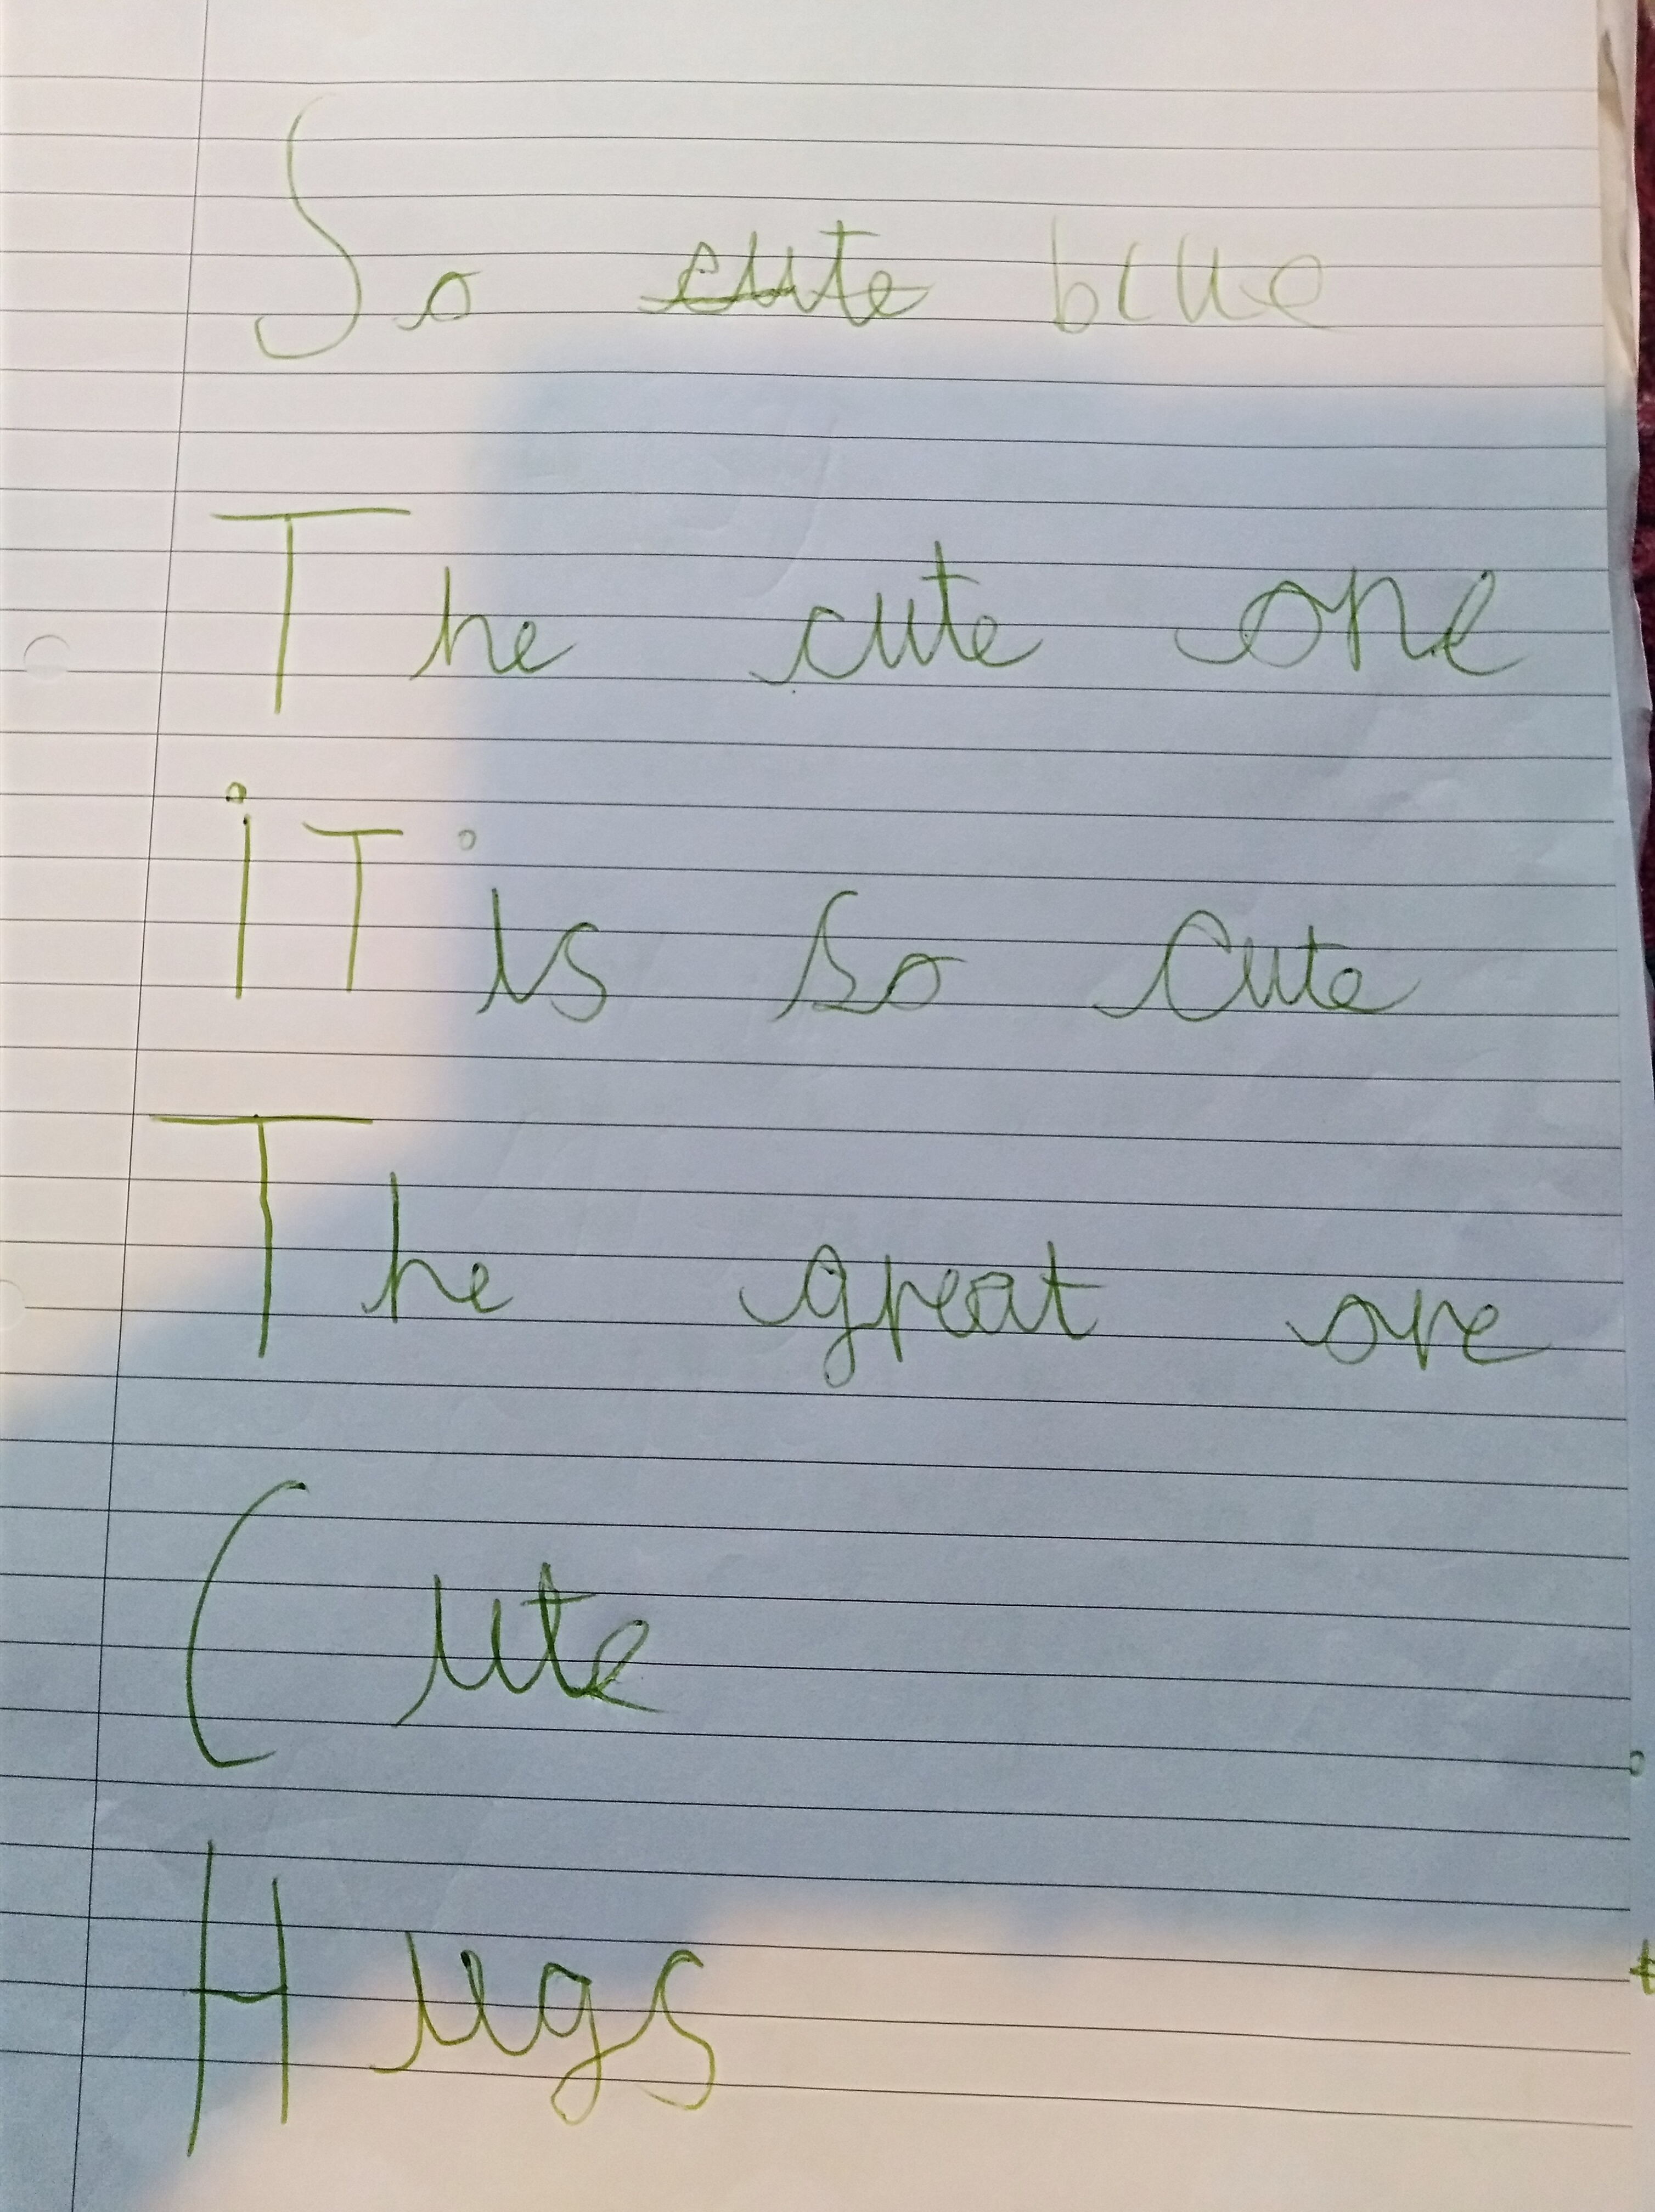 So cute blue
The cute one
iT is so Cute
The great one
Cute
Hugs